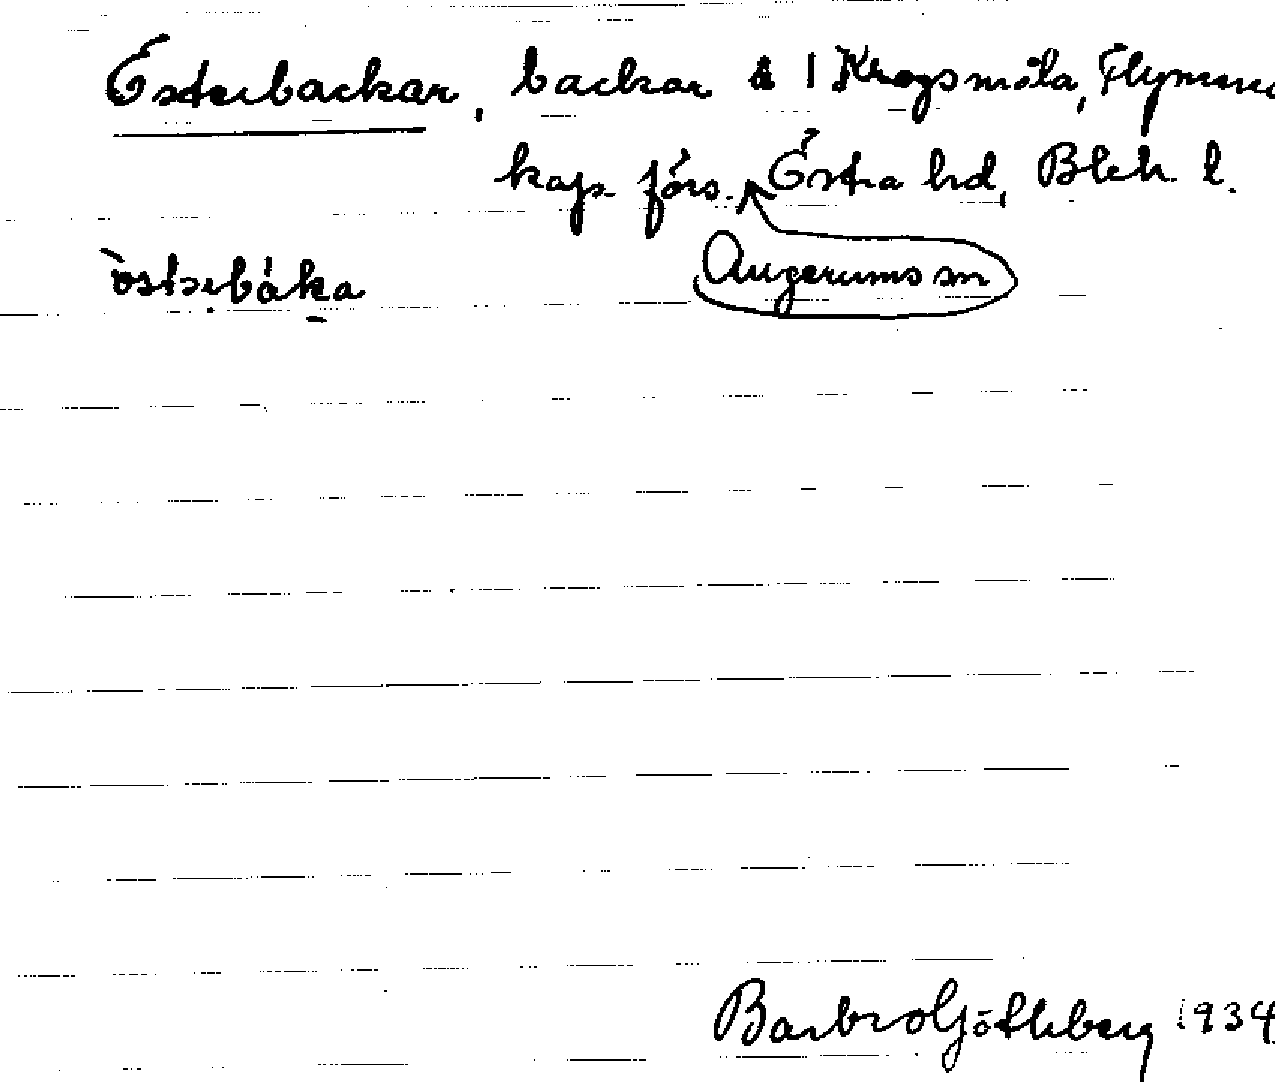 Österbackar, backar å 1 Krogsmåla, Flymens
kap. förs. Östra hd, Blek. l.
Augerums sn
östərbáka
Barbro Götlberg 1934